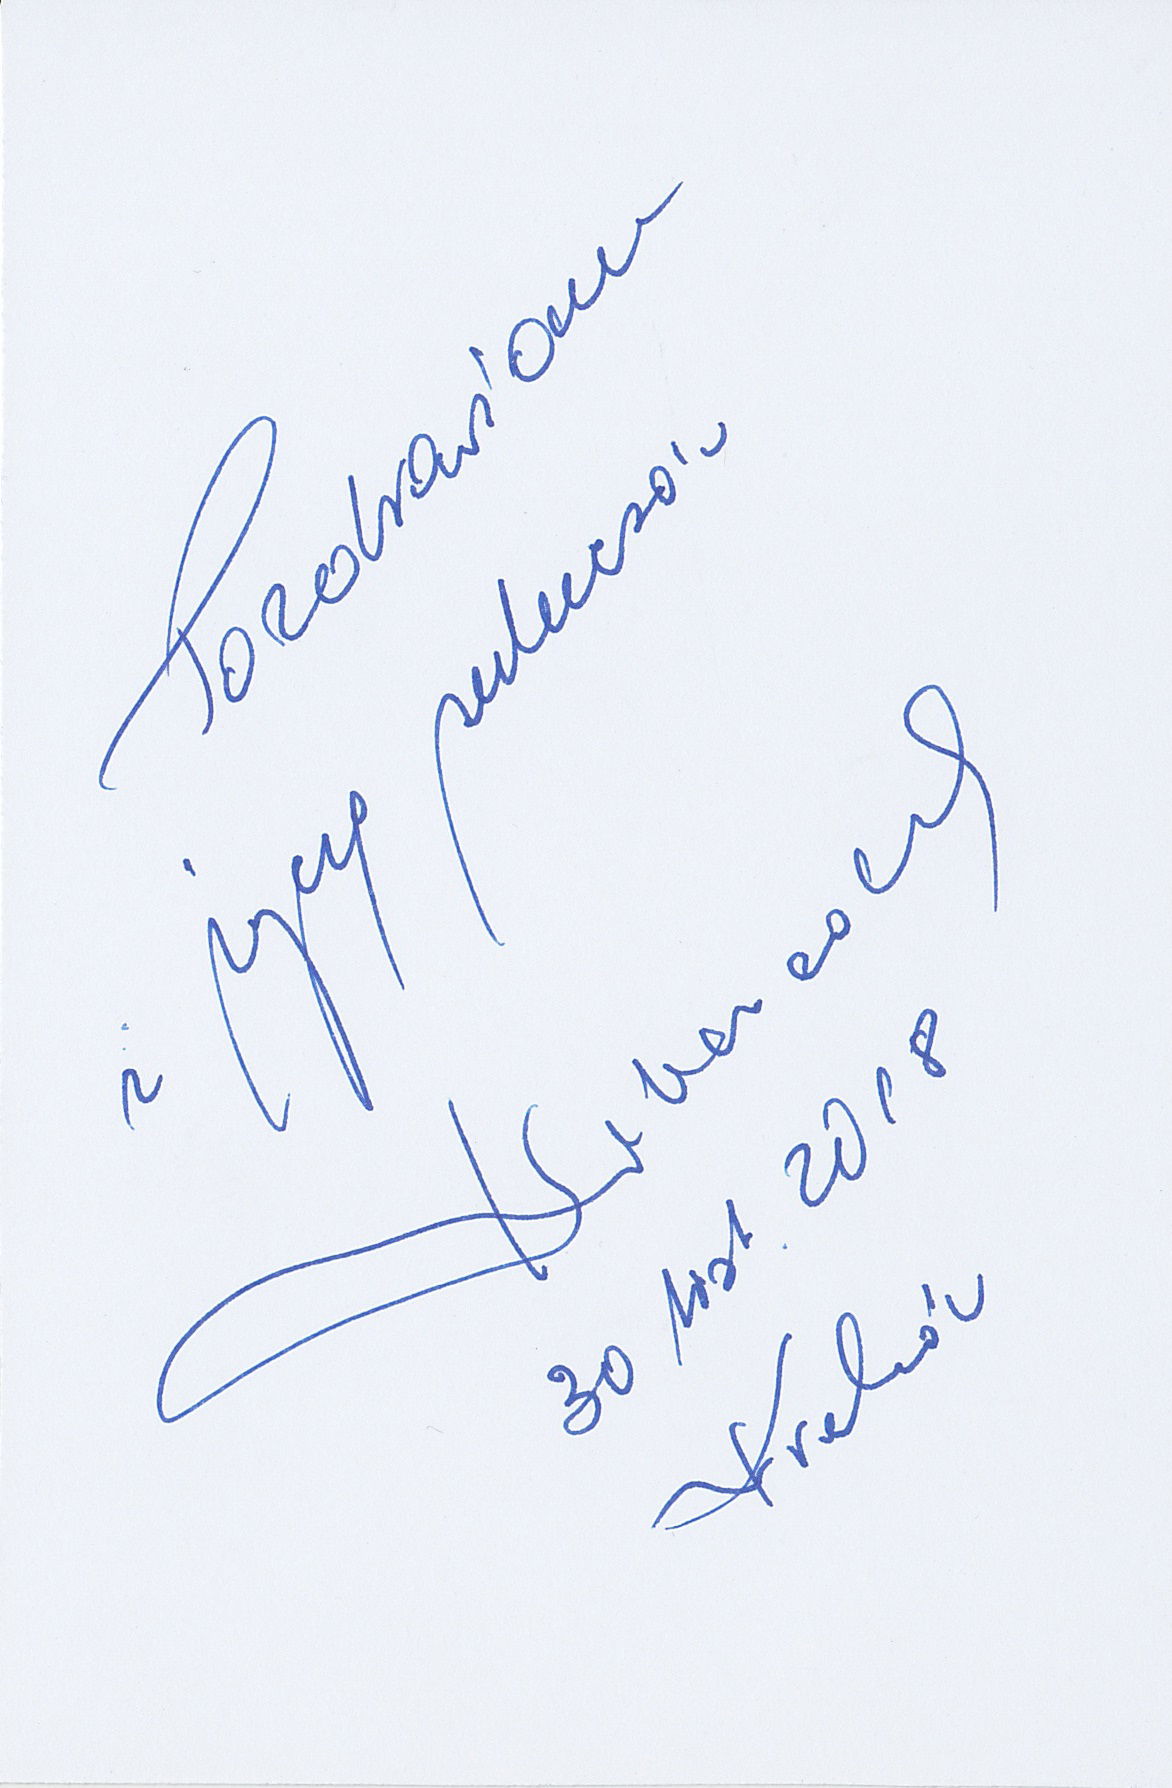 Pozdrawiam
i życzę sukcesów
30 list. 2018
Kraków